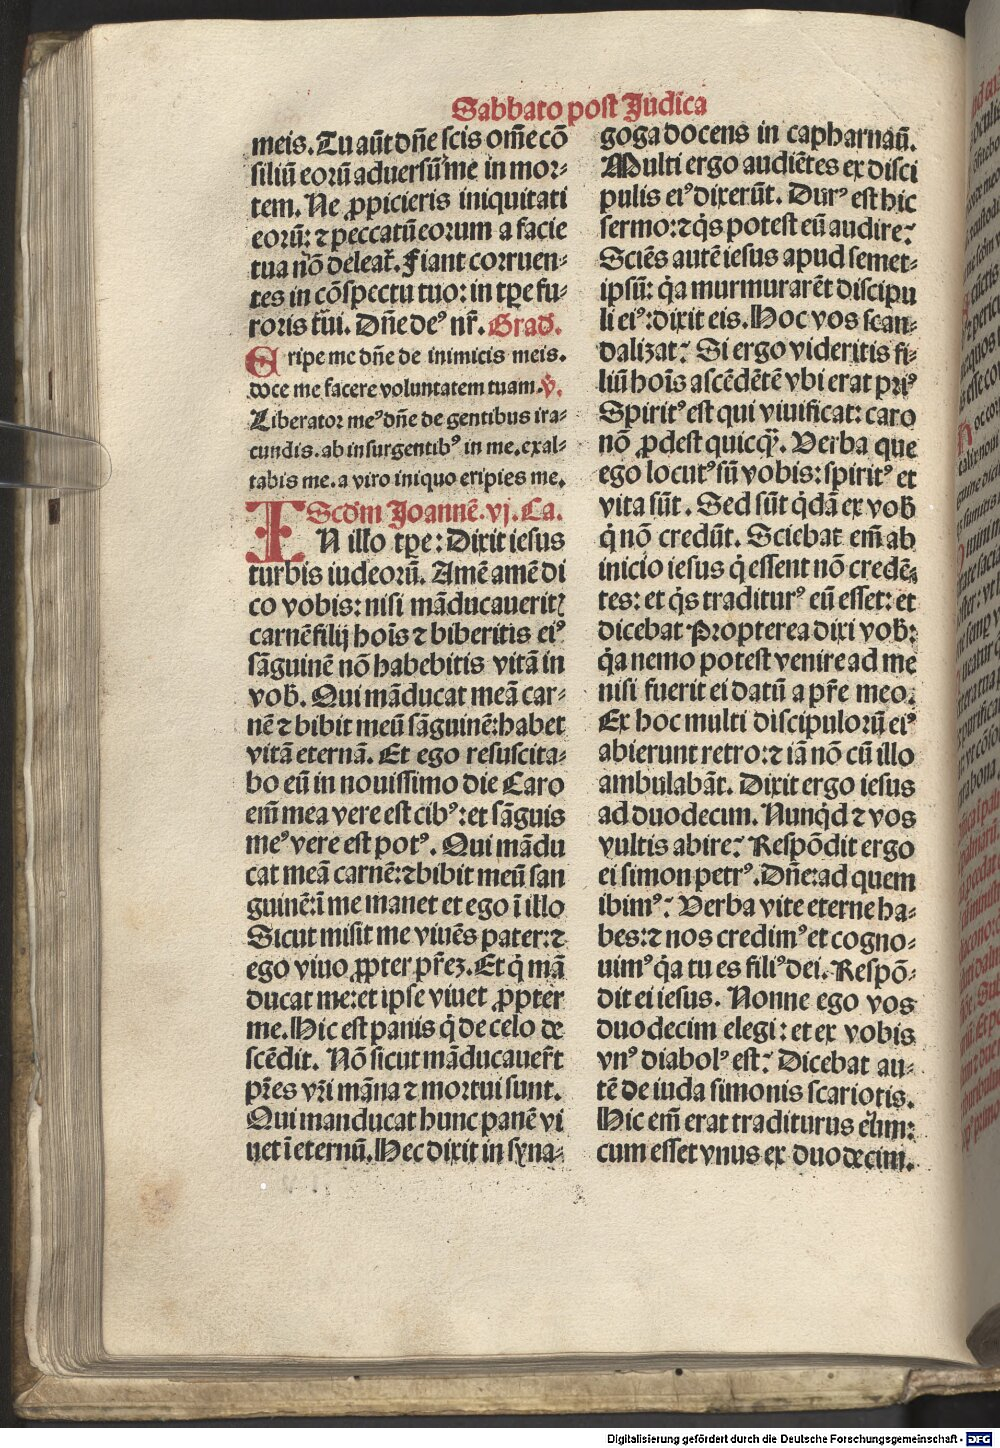 Sabbato post Judica
meis. Tu aūt dn̄e scis om̄e cō
siliū eorū aduersū me in mor⸗
tem. Ne ꝓpicieris iniquitati
eorū: ⁊ peccatū eorum a facie
tua nō deleat᷑. Fiant corruen⸗
tes in cōspectu tuo: in tp̄e fu⸗
roris tui. Dn̄e deꝰ nr̄. Grad̄.
Eripe me dn̄e de inimicis meis.
doce me facere voluntatem tuam. v̄.
Liberator meꝰ dn̄e de gentibus ira⸗
cundis. ab insurgentibꝰ in me. exal⸗
tabis me. a viro iniquo eripies me.
Scd̄m Joannē. vj. Ca.
IN illo tp̄e: Dixit iesus
turbis iudeorū. Amē amē di
co vobis: nisi māducauerit᷑
carnē filij hoīs ⁊ biberitis eiꝰ
sāguinē nō habebitis vitā in
vob̄. Qui māducat meā car⸗
nē ⁊ bibit meū sāguinē: habet
vitā eternā. Et ego resuscita⸗
bo eū in nouissimo die Caro
em̄ mea vere est cibꝰ: et sāguis
meꝰ vere est potꝰ. Qui mādu
cat meā carnē: ⁊ bibit meū san
guinē: ī me manet et ego ī illo
Sicut misit me viuēs pater: ⁊
ego viuo ꝓpter pr̄eꝫ. Et q̇ mā
ducat me: et ipse viuet ꝓpter
me. Hic est panis q̇ de celo de
scēdit. Nō sicut māducauer̄t
pr̄es vr̄i māna ⁊ mortui sunt.
Qui manducat hunc panē vi
uet ī eternū. Hec dixit in syna⸗
goga docens in capharnaū.
Multi ergo audiētes ex disci
pulis eiꝰ dixerūt. Durꝰ est hic
sermo: ⁊ q̇s potest eū audire?
Sciēs autē iesus apud semet⸗
ipsū: q̇a murmurarēt discipu
li eiꝰ: dixit eis. Hoc vos scan⸗
dalizat? Si ergo videritis fi⸗
liū hoīs ascēdētē vbi erat priꝰ
Spiritꝰ est qui viuificat: caro
nō ꝓdest quicq̄ꝫ. Verba que
ego locutꝰ sū vobis: spiritꝰ et
vita sūt. Sed sūt q̇dā ex vob̄
q̇ nō credūt. Sciebat em̄ ab
inicio iesus q̇ essent nō credē⸗
tes: et q̇s traditurꝰ eū esset: et
dicebat Propterea dixi vob̄:
q̇a nemo potest venire ad me
nisi fuerit ei datū a pr̄e meo.
Ex hoc multi discipulorū eiꝰ
abierunt retro: ⁊ iā nō cū illo
ambulabāt. Dixit ergo iesus
ad duodecim. Nunq̇d ⁊ vos
vultis abire? Respōdit ergo
ei simon petrꝰ. Dn̄e: ad quem
ibimꝰ? Verba vite eterne ha⸗
bes: ⁊ nos credimꝰ et cogno⸗
uimꝰ q̇a tu es filiꝰ dei. Respō⸗
dit ei iesus. Nonne ego vos
duodecim elegi: et ex vobis
vnꝰ diabolꝰ est? Dicebat au⸗
tē de iuda simonis scariotis.
Hic em̄ erat traditurus eum:
cum esset vnus ex duodecim.
Digitalisierung gefördert durch die Deutsche Forschungsgemeinschaft - DFG